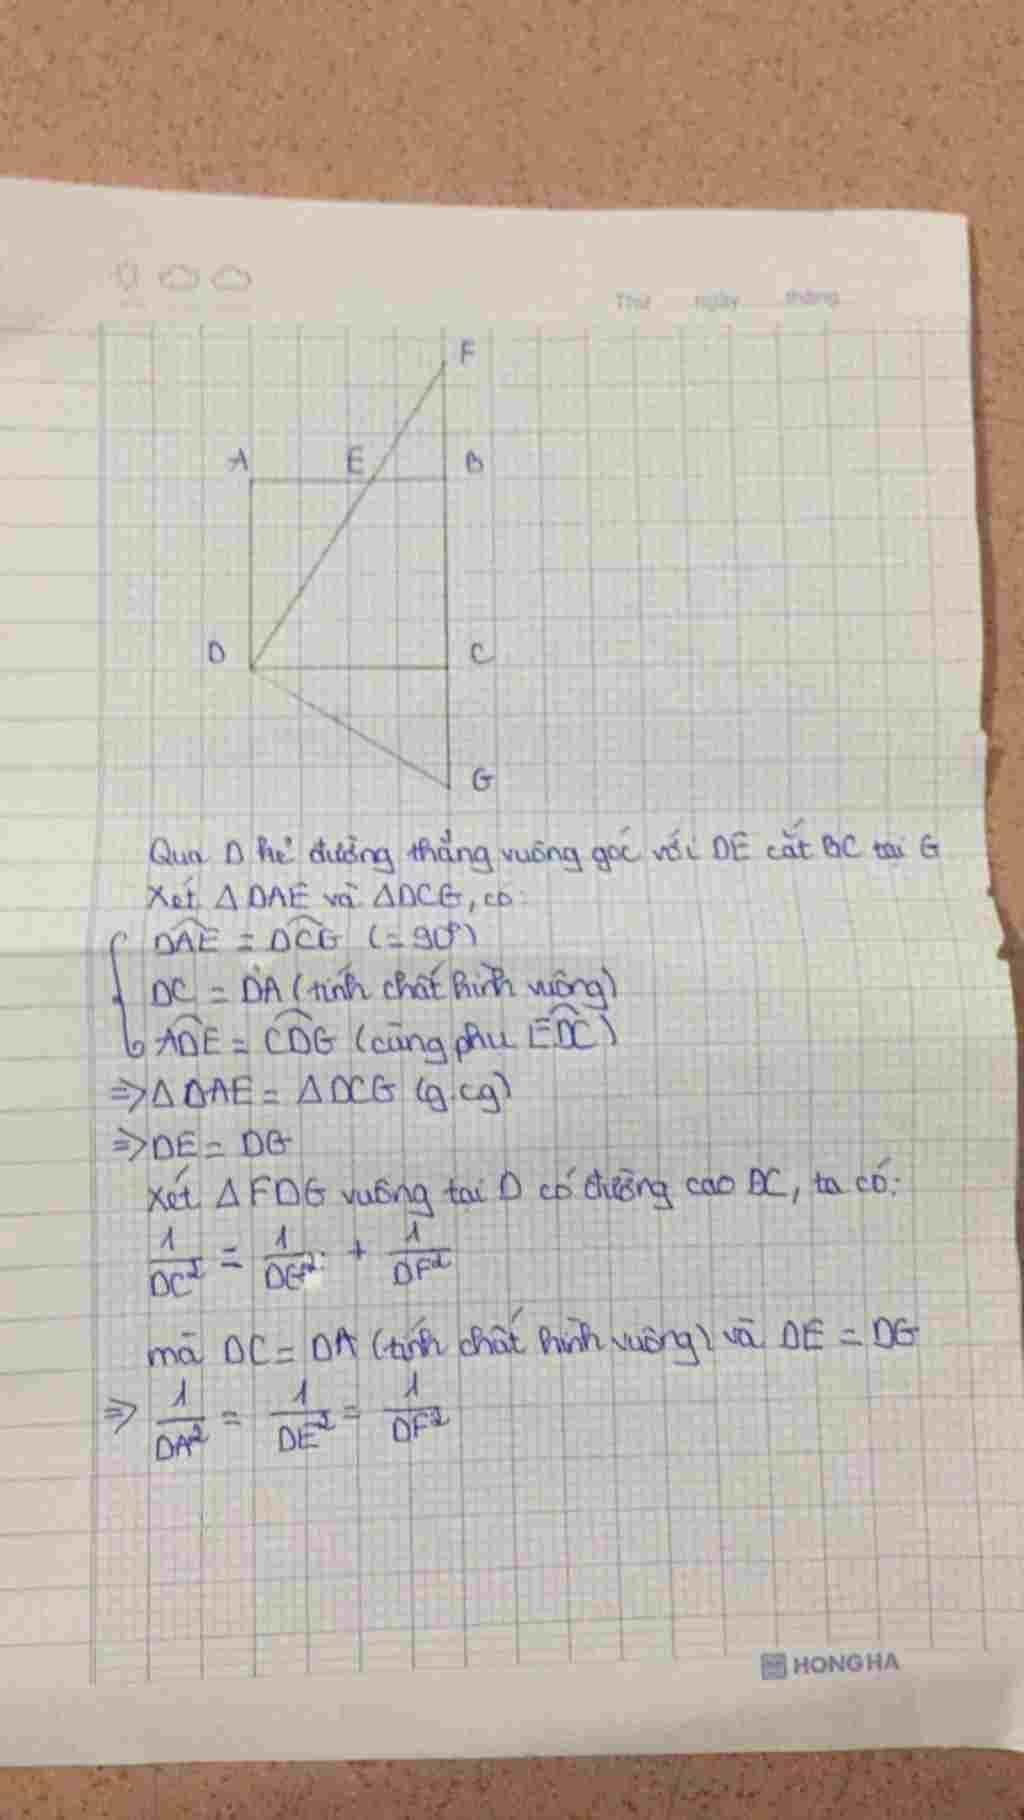 Thứ ngày tháng
F
A E B
D C
G
Qua D kẻ đường thẳng vuông góc với DE cắt BC tại G
Xét △DAE và △DCG, có:
DAE = DCG (= 90°)
DC = DA (tính chất hình vuông)
ADE = CDG (cùng phụ EDC)
=> △DAE = △DCG (g.cg)
=> DE = DG
Xét △FDG vuông tại D có đường cao DC, ta có:
1/DC² = 1/DG² + 1/DF²
mà DC = DA (tính chất hình vuông) và DE = DG
=> 1/DA² = 1/DE² = 1/DF²
HONG HA